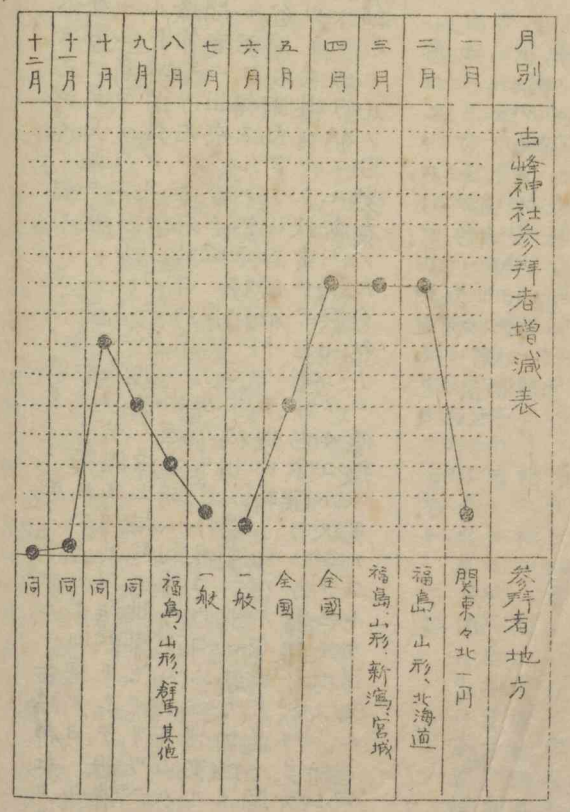 月別
古峰神社参拜者増減表
参拜者地方
一月
関東々北一円
二月
福島、山形、北海道
三月
福島、山形、新潟、宮城
四月
全國
五月
全国
六月
一般
七月
一般
八月
福島、山形、群馬其他
九月
同
十月
同
十一月
同
十二月
同